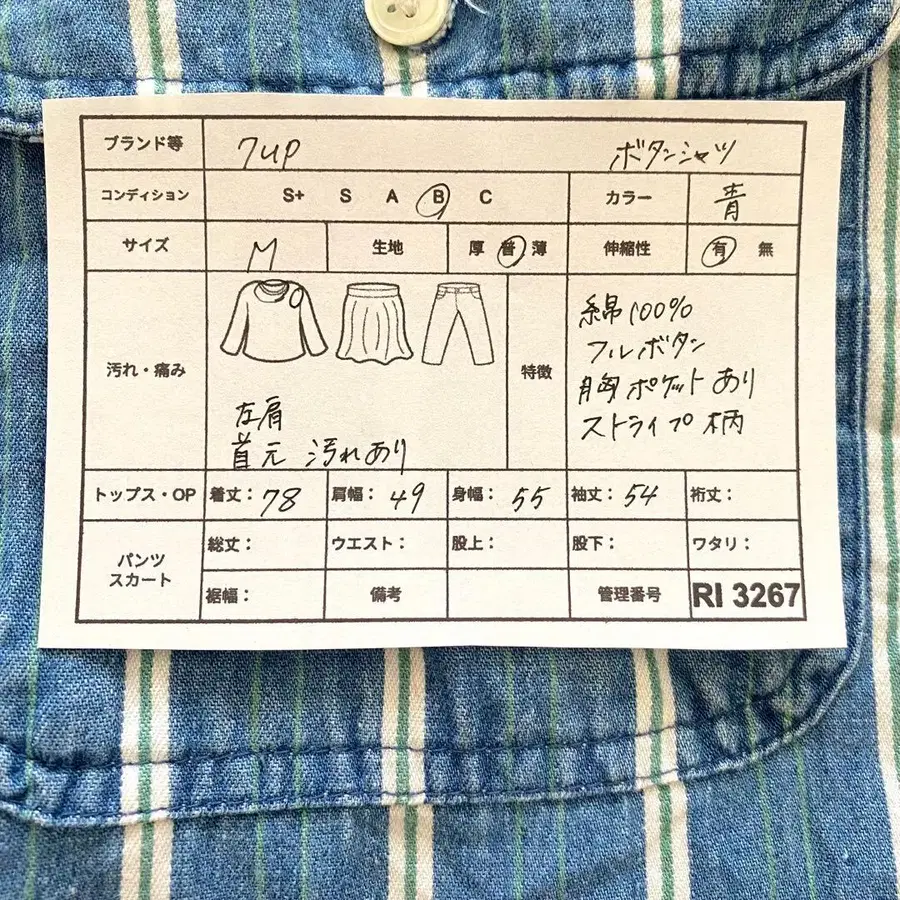 ブランド等 7up ボタンシャツ
コンディション S+ S A B C カラー 青
サイズ M 生地 厚 普 薄 伸縮性 有 無
汚れ・痛み 左肩
首元 汚れあり
特徴 綿100%
フルボタン
胸ポケットあり
ストライプ柄
トップス・OP 着丈: 78 肩幅: 49 身幅: 55 袖丈: 54 裄丈:
パンツ
スカート
総丈: ウエスト: 股上: 股下: ワタリ:
裾幅: 備考 管理番号 RI 3267